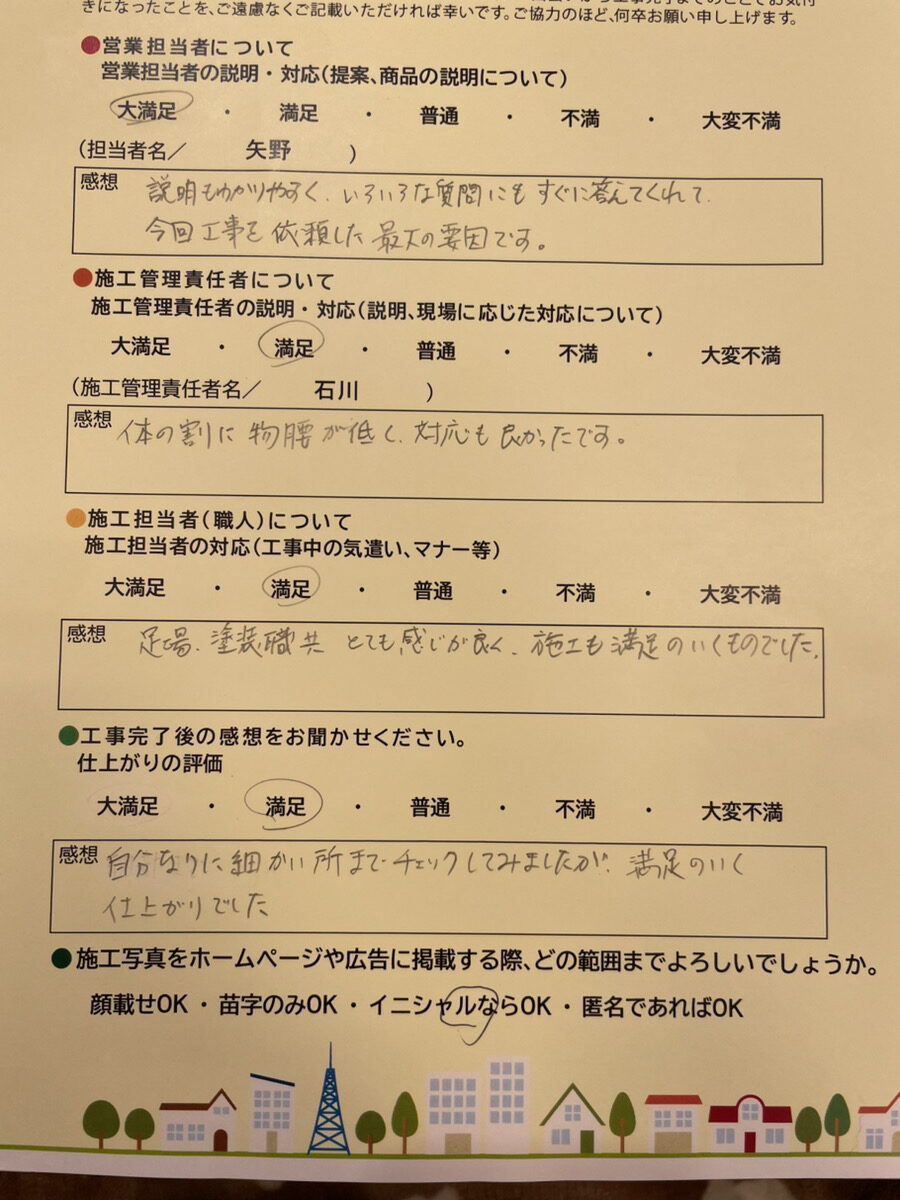 きになったことを、ご遠慮なくご記載いただければ幸いです。ご協力のほど、何卒お願い申し上げます。
●営業担当者について
営業担当者の説明・対応(提案、商品の説明について)
大満足 ・ 満足 ・ 普通 ・ 不満 ・ 大変不満
(担当者名/ 矢野 )
感想 説明もわかりやすく、いろいろな質問にもすぐに答えてくれて、
今回工事を依頼した最大の要因です。
●施工管理責任者について
施工管理責任者の説明・対応(説明、現場に応じた対応について)
大満足 ・ 満足 ・ 普通 ・ 不満 ・ 大変不満
(施工管理責任者名/ 石川 )
感想 体の割に物腰が低く、対応も良かったです。
●施工担当者(職人)について
施工担当者の対応(工事中の気遣い、マナー等)
大満足 ・ 満足 ・ 普通 ・ 不満 ・ 大変不満
感想 足場、塗装職共とても感じが良く、施工も満足のいくものでした。
●工事完了後の感想をお聞かせください。
仕上がりの評価
大満足 ・ 満足 ・ 普通 ・ 不満 ・ 大変不満
感想 自分なりに細かい所までチェックしてみましたが、満足のいく
仕上がりでした
●施工写真をホームページや広告に掲載する際、どの範囲までよろしいでしょうか。
顔載せOK・苗字のみOK・イニシャルならOK・匿名であればOK